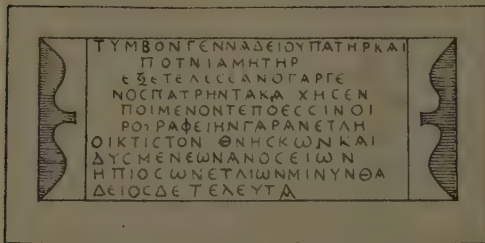 ΤΥΜΒΟΝΓΕΝΝΑΔΕΙΟΥΠΑΤΗΡΚΑΙ
ΠΟΤΝΙΑΜΗΤΗΡ
ΕΞΕΤΕΛΕϹϹΑΝΟΓΑΡΓΕ
ΝΟϹΠΑΤΡΗΝΤΑΚΑ ΧΗϹΕΝ
ΠΟΙΜΕΝΟΝΤΕΠΟΕϹϹΙΝΟΙ
ΡΟΙΡΑΦΕΙΗΝΓΑΡΑΝΕΤΛΗ
ΟΙΚΤΙϹΤΟΝ ΘΝΗϹΚωΝΚΑΙ
ΔΥϹΜΕΝΕωΝΑΝΟϹΕΙωΝ
ΗΠΙΟϹωΝΕΤΛΙωΝΜΙΝΥΝΘΑ
ΔΕΙΟϹΔΕΤΕΛΕΥΤΑ